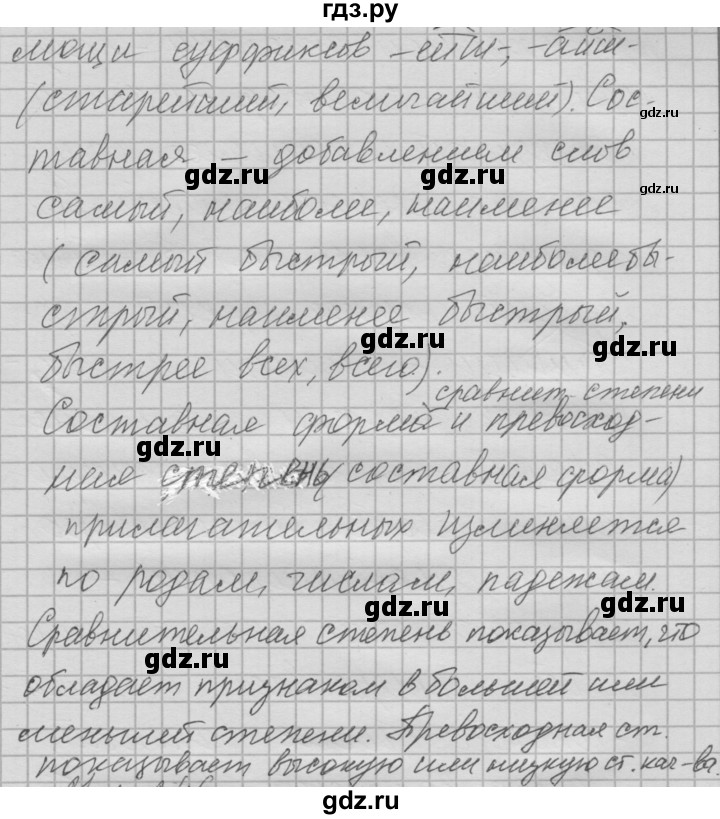 гдз.ру
мощи суффиксов -ейш-, -айш-
(старейший, величайший). Сос-
gdz.ru
тавная – добавлением слов
gdz.ru gdz.ru gdz.ru
самый, наиболее, наименее
(самый быстрый, наиболее бы-
стрый, наименее быстрый,
gdz.ru gdz.ru
быстрее всех, всего).
сравнит. степени
Составная форма и превосход-
gdz.ru
ная степень (составная форма)
прилагательных изменяется
по родам, числам, падежам.
gdz.ru gdz.ru
Сравнительная степень показывает, что
gdz.ru
обладает признаком в большей или
меньшей степени. Превосходная ст.
показывает высокую или низкую ст. кач-ва.
gdz.ru gdz.ru